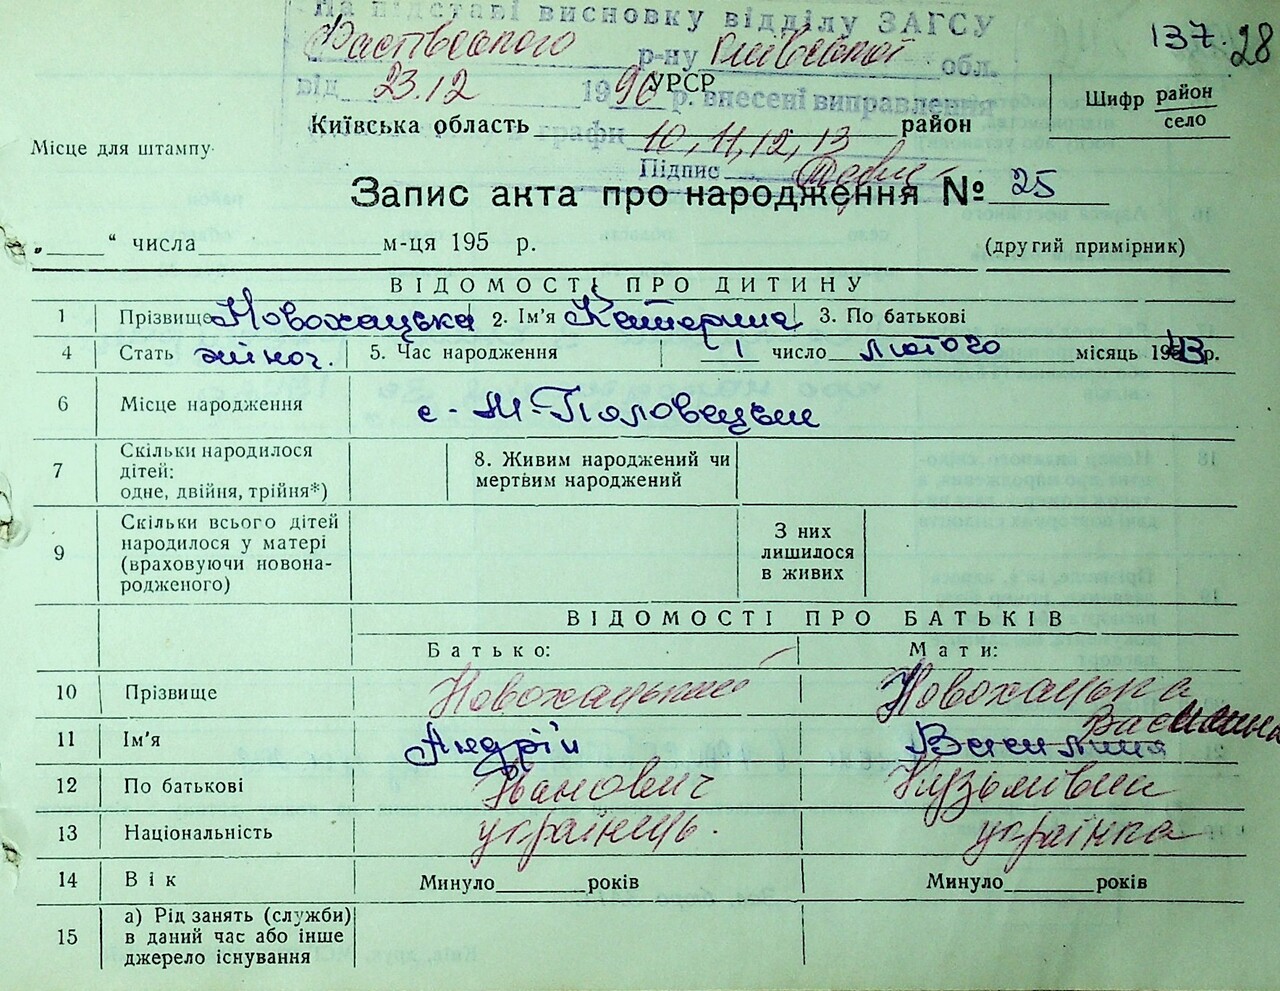 На підставі висновку відділу ЗАГСУ
Фастівського р-ну Київської обл.
137. 28
від 23.12 1990 р. внесені виправлення
УРСР
в графи 10, 11, 12, 13
Київська область район
Шифр район село
Місце для штампу
Підпис
Запис акта про народження № 25
„ “ числа м-ця 195 р.
(другий примірник)
ВІДОМОСТІ ПРО ДИТИНУ
1 Прізвище Новохацька 2. Ім'я Катерина 3. По батькові
4 Стать жіноч. 5. Час народження 1 число лютого місяць 1943 р.
6 Місце народження с. М-Половецьки
7 Скільки народилося дітей: одне, двійня, трійня*) 8. Живим народжений чи мертвим народжений
9 Скільки всього дітей народилося у матері (враховуючи новона-родженого) З них лишилося в живих
ВІДОМОСТІ ПРО БАТЬКІВ
Батько: Мати:
10 Прізвище Новохацький Новохацька
Василина
11 Ім'я Андрій
12 По батькові Іванович Кузьмівна
13 Національність українець. українка
14 Вік Минуло років Минуло років
15 а) Рід занять (служби) в даний час або інше джерело існування